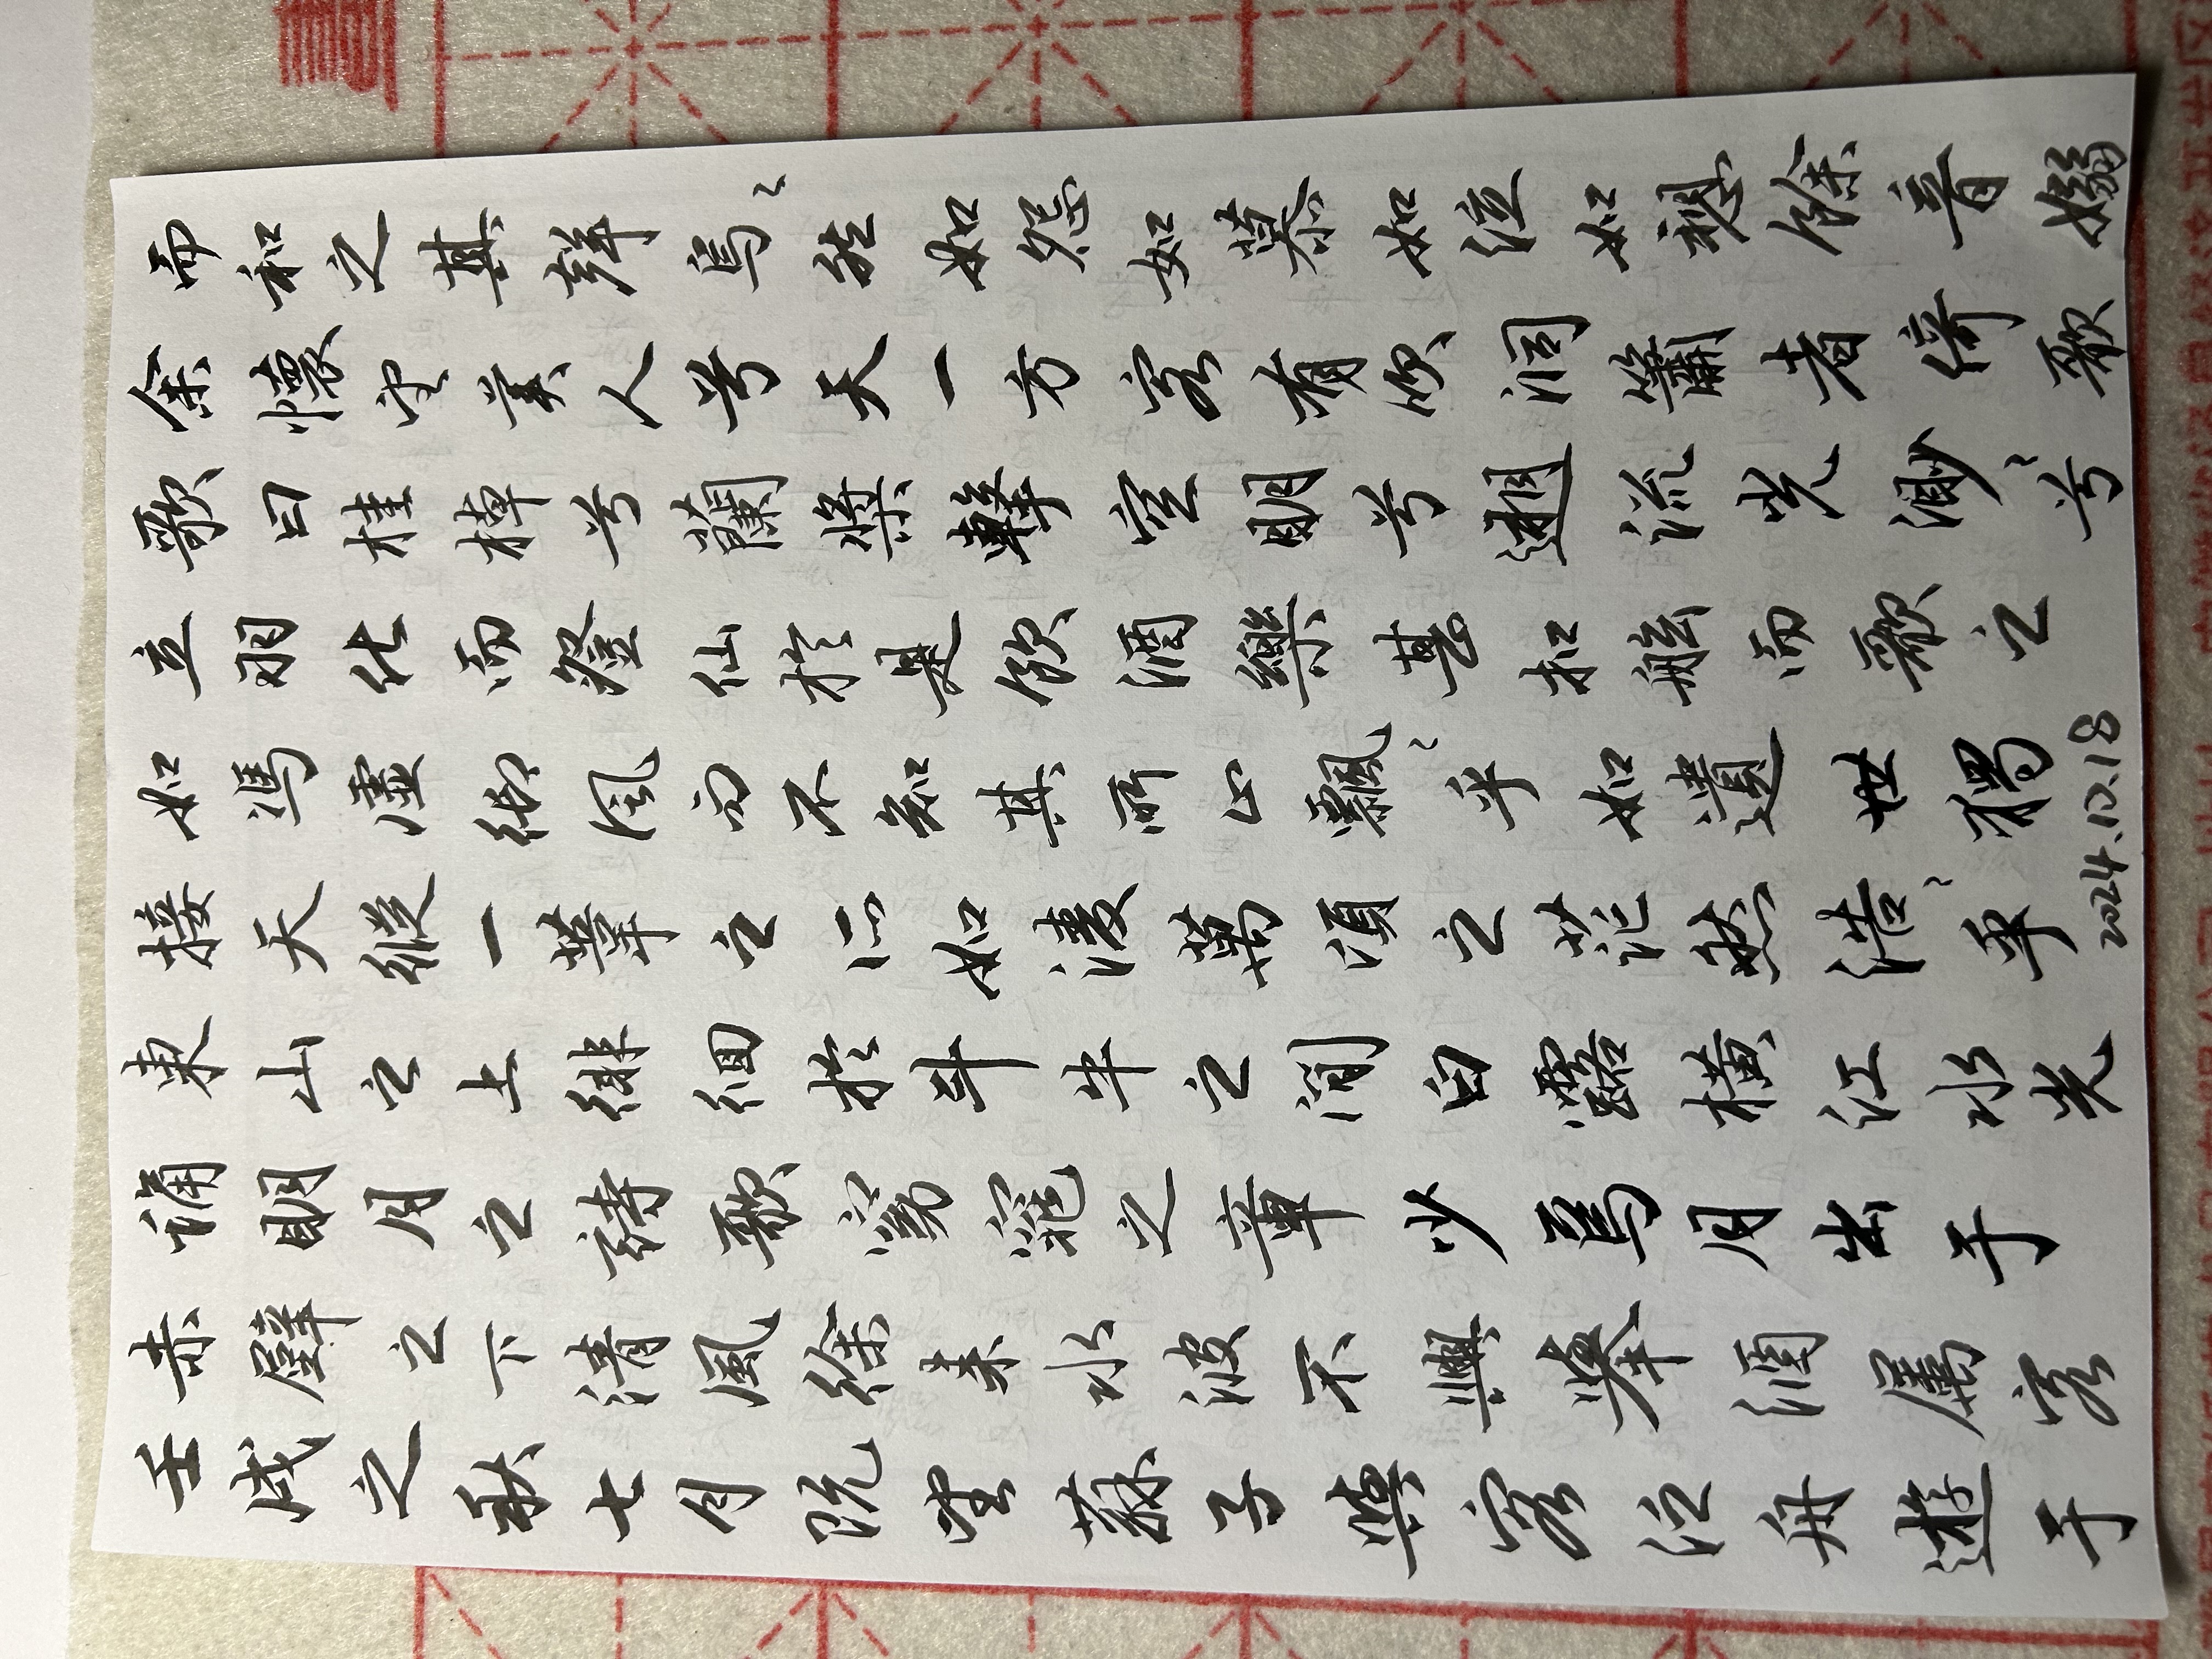 壬戌之秋七月既望蘇子與客泛舟遊于
赤壁之下清風徐来水波不興舉酒属客
誦明月之詩歌窈窕之章少焉月出于
東山之上徘徊於斗牛之間白露橫江水光
接天縱一葦之所如淩萬頃之茫然浩〻乎
如馮虛御風而不知其所止飄〻乎如遺世獨
立羽化而登仙於是飲酒樂甚扣舷而歌之
歌曰桂棹兮蘭槳擊空明兮遡流光渺〻兮
余懷望美人兮天一方客有吹洞簫者倚歌
而和之其聲烏〻然如怨如慕如泣如愬餘音嫋
2024.10.18